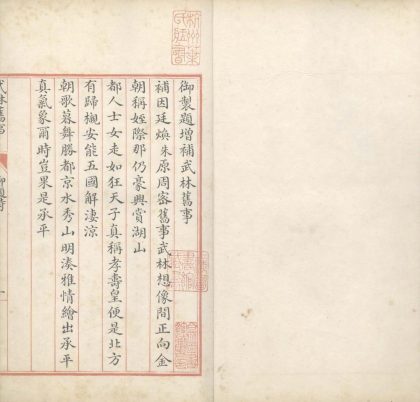 御製題增補武林舊事
補因廷煥朱原周密舊事武林想像間正向金
朝稱姪際那仍豪興賞湖山
都人士女走如狂天子真稱孝壽皇便是北方
有歸櫬安能五國解淒涼
朝歌暮舞勝都京水秀山明湊雅情繪出承平
真氣象爾時豈果是承平
武林舊事
御題詩
一